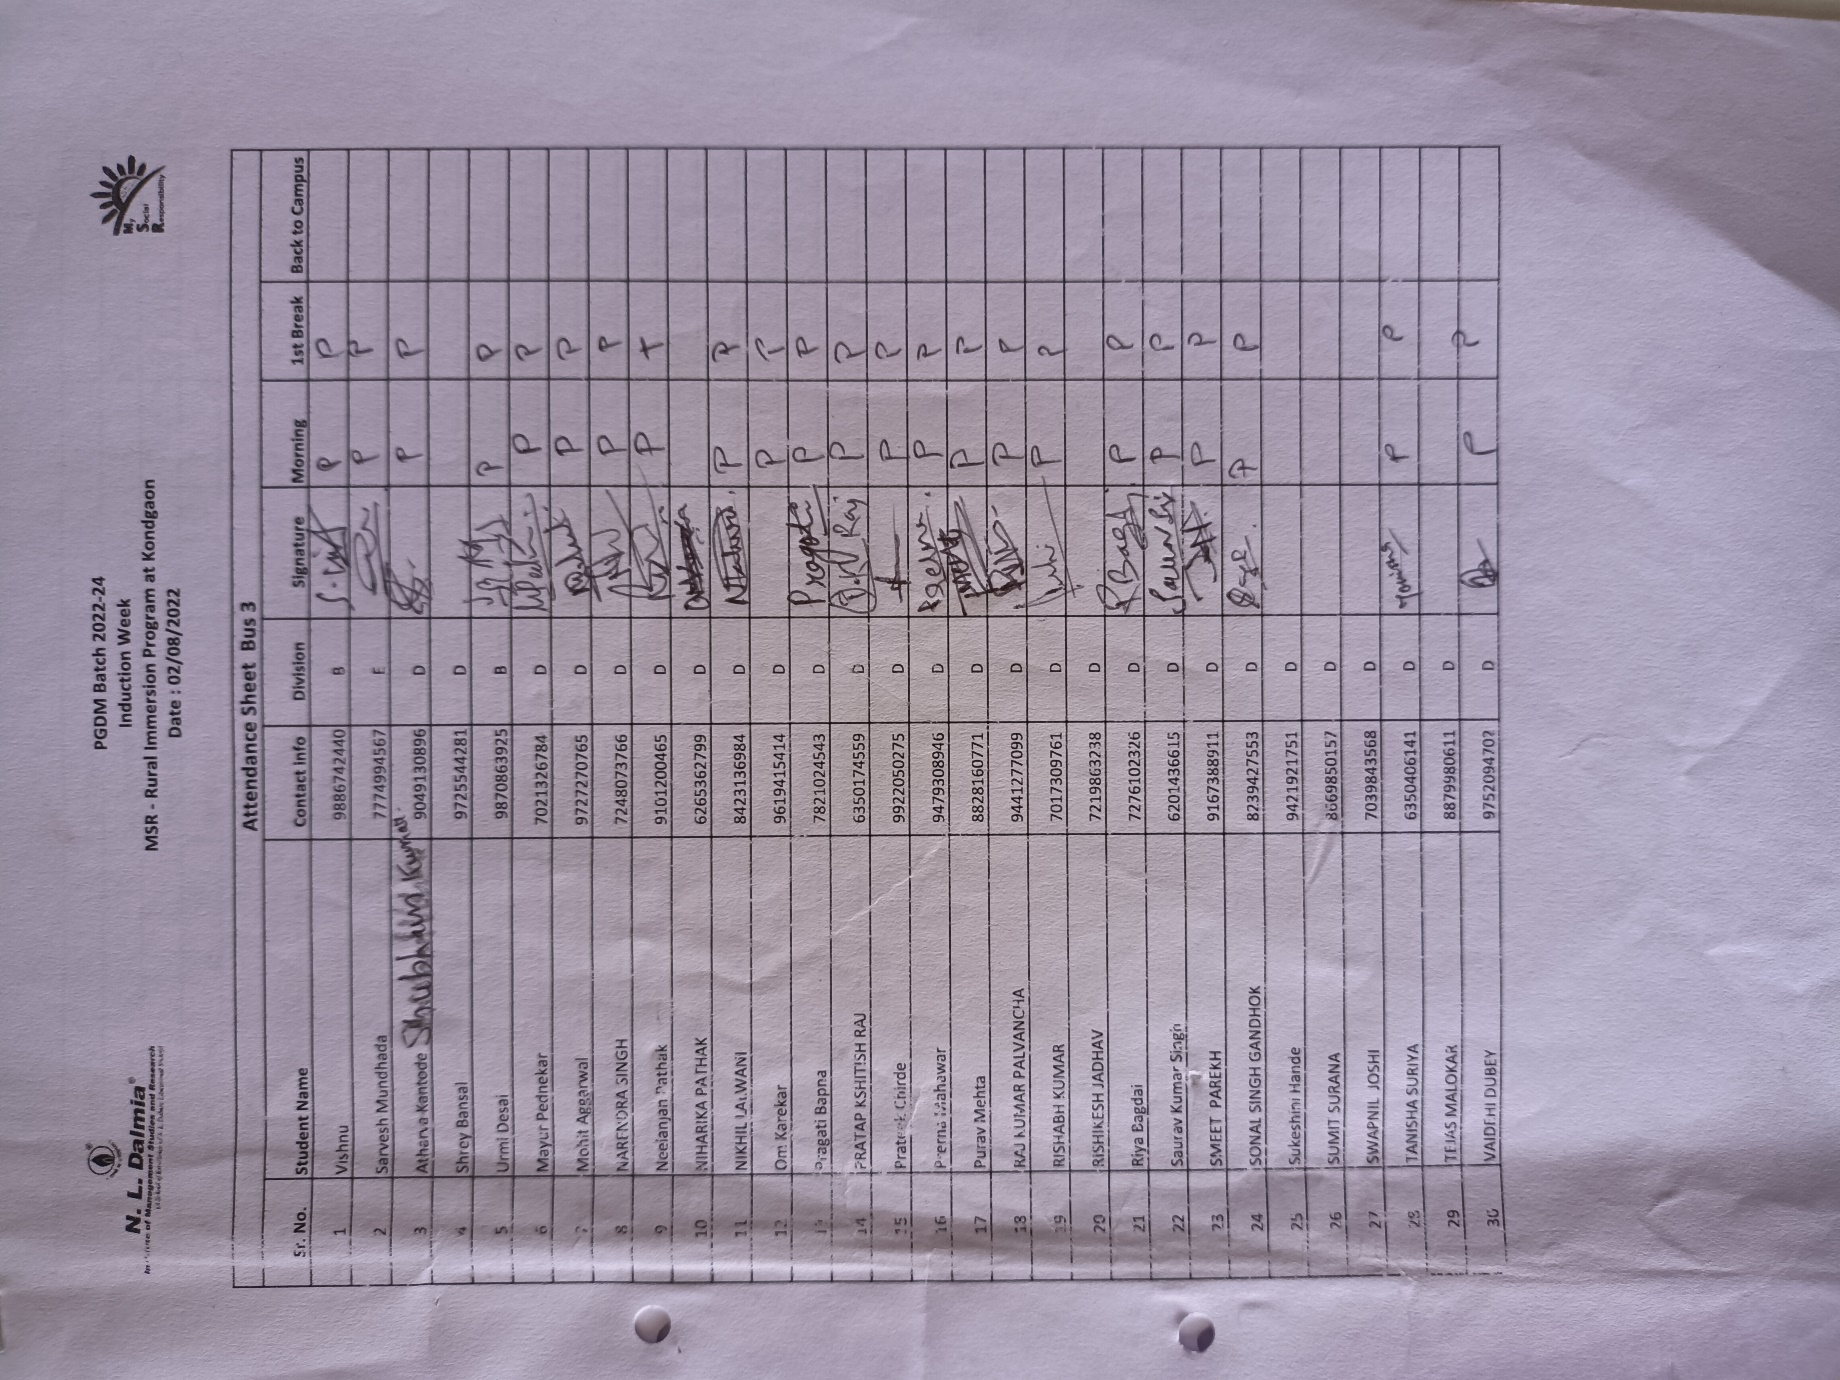 N. L. Dalmia®
Institute of Management Studies and Research
My
Social
Responsibility
PGDM Batch 2022-24
Induction Week
MSR - Rural Immersion Program at Kondgaon
Date : 02/08/2022
Attendance Sheet Bus 3
Sr. No. Student Name Contact Info Division Signature Morning 1st Break Back to Campus
1 Vishnu 9886742440 B P P
2 Sarvesh Mundhada 7774994567 E P P
3 Atharva Kantode Shubham Kumar 9049130896 D P P
4 Shrey Bansal 9725544281 D
5 Urmi Desai 9870863925 B P P
6 Mayur Pednekar 7021326784 D P P
7 Mohit Aggarwal 9727270765 D P P
8 NARENDRA SINGH 7248073766 D P P
9 Neelanjan Pathak 9101200465 D P
10 NIHARIKA PATHAK 6265362799 D
11 NIKHIL LALWANI 8423136984 D P P
12 Om Karekar 9619415414 D P P
13 Pragati Bapna 7821024543 D Pragati P P
14 PRATAP KSHITISH RAJ 6350174559 D Raj P P
15 Prateek Chirde 9922050275 D P P
16 Prerna Mahawar 9479308946 D P P
17 Purav Mehta 8828160771 D P P
18 RAJ KUMAR PALVANCHA 9441277099 D P P
19 RISHABH KUMAR 7017309761 D P P
20 RISHIKESH JADHAV 7219863238 D
21 Riya Bagdai 7276102326 D RBagdai P P
22 Saurav Kumar Singh 6201436615 D P P
23 SMEET PAREKH 9167388911 D P P
24 SONAL SINGH GANDHOK 8239427553 D P P
25 Sukeshini Hande 9421921751 D
26 SUMIT SURANA 8669850157 D
27 SWAPNIL JOSHI 7039843568 D
28 TANISHA SURIYA 6350406141 D P P
29 TEJAS MALOKAR 8879980611 D
30 VAIDEHI DUBEY 9752094702 D P P